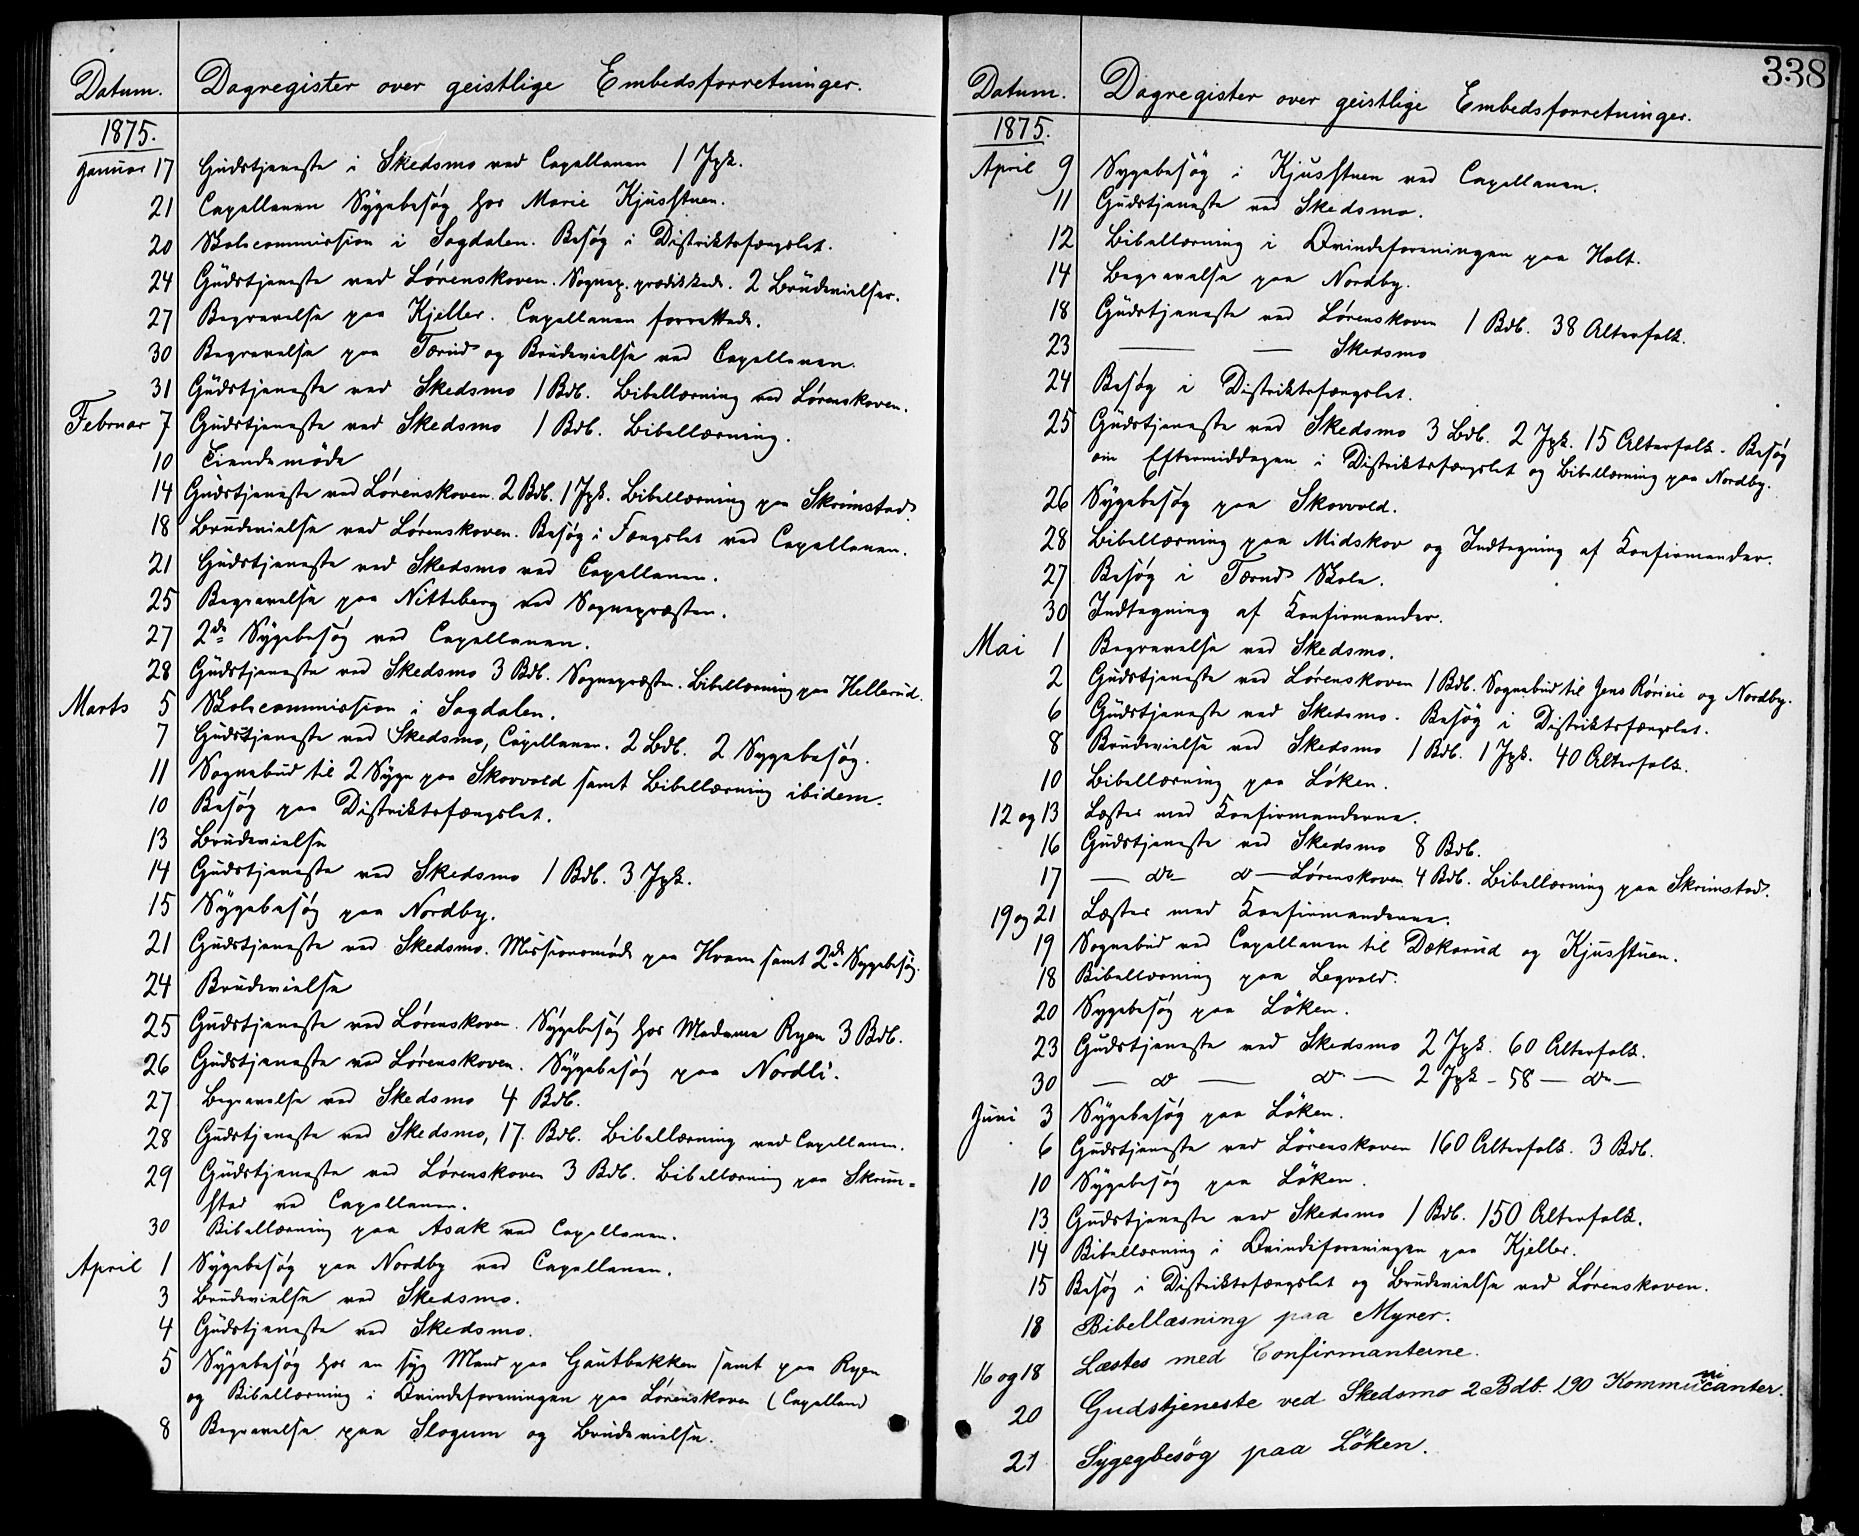 Datum. Dagregister over geistlige Embedsforretninger.
1875.
Januar 17 Gudstjeneste i Skedsmo ved Capellanen 1 Jgk.
21 Capellanen Sygebesøg hos Marie Kjusstuen.
20 Skolecommission i Sagdalen. Besøg i Distriktsfængslet.
24 Gudstjeneste ved Lørenskoven. Sognep. prædikede. 2 Brudevielser.
27 Begravelse paa Kjeller. Capellanen forrettede.
30 Begravelse paa Tærud og Brudevielse ved Capellanen.
31 Gudstjeneste ved Skedsmo 1 Bdb. Bibellæsning ved Lørenskoven.
Februar 7 Gudstjeneste ved Skedsmo 1 Bdb. Bibellæsning.
10 Tiendemøde
14 Gudstjeneste ved Lørenskoven. 2 Bdb. 1 Jgk. Bibellæsning paa Skrimstad.
18 Brudevielse ved Lørenskoven. Besøg i Fængslet ved Capellanen.
21 Gudstjeneste ved Skedsmo ved Capellanen.
25 Begravelse paa Nitteberg ved Sognepræsten.
27 2de Sygebesøg ved Capellanen.
28 Gudstjeneste ved Skedsmo 3 Bdb. Sognepræsten. Bibellæsning paa Hellerud.
Marts 5 Skolecommission i Sagdalen.
7 Gudstjeneste ved Skedsmo, Capellanen. 2 Bdb. 2 Sygebesøg.
11 Sognebud til 2 Syge paa Skovvold samt Bibellæsning ibidem.
10 Besøg paa Distriktsfængslet.
13 Brudevielse
14 Gudstjeneste ved Skedsmo 1 Bdb. 3 Jgk.
15 Sygebesøg paa Nordby.
21 Gudstjeneste ved Skedsmo. Missionsmøde paa Hvam samt 2de Sygebesøg.
24 Brudevielse
25 Gudstjeneste ved Lørenskoven. Sygebesøg hos Madame Ryen 3 Bdb.
26 Gudstjeneste ved Lørenskoven. Sygebesøg paa Nordli.
27 Begravelse ved Skedsmo 4 Bdb.
28 Gudstjeneste ved Skedsmo, 17. Bdb. Bibellæsning ved Capellanen.
29 Gudstjeneste ved Lørenskoven 3 Bdb. Bibellæsning paa Skrim-
stad ved Capellanen.
30 Bibellæsning paa Asak ved Capellanen.
April 1 Sygebesøg paa Nordby ved Capellanen.
3 Brudevielse ved Skedsmo.
4 Gudstjeneste ved Skedsmo.
5 Sygebesøg hos en syg Mand paa Gautbakken samt paa Ryen
og Bibellæsning i Qvindeforeningen paa Lørenskoven (Capelland
8 Begravelse paa Slogum og Brudevielse.
338
Datum. Dagregister over geistlige Embedsforretninger.
1875.
April 9 Sygebesøg i Kjusstuen ved Capellanen.
11 Gudstjeneste ved Skedsmo.
12 Bibellæsning i Qvindeforeningen paa Holt.
14 Begravelse paa Nordby.
18 Gudstjeneste ved Lørenskoven 1 Bdb. 38 Alterfolk.
23 — — Skedsmo
24 Besøg i Distriktsfængslet.
25 Gudstjeneste ved Skedsmo 3 Bdb. 2 Jgk. 15 Alterfolk. Besøg
om Eftermiddagen i Distriktsfængslet og Bibellæsning paa Nordby.
26 Sygebesøg paa Skovvold.
28 Bibellæsning paa Midskov og Indtegning af Konfirmander.
27 Besøg i Tærud Skole.
30 Indtegning af Konfirmander.
Mai 1 Begravelse ved Skedsmo.
2 Gudstjeneste ved Lørenskoven 1 Bdb. Sognebud til Jens og Nordby.
6 Gudstjeneste ved Skedsmo. Besøg i Distriktsfængslet.
8 Brudevielse ved Skedsmo 1 Bdb. 1 Jgk. 40 Alterfolk.
10 Bibellæsning paa Løken.
12 og 13 Læstes med Konfirmanderne.
16 Gudstjeneste ved Skedsmo 8 Bdb.
17 — do — do — Lørenskoven 4 Bdb. Bibellæsning paa Skrimstad.
19 og 21 Læstes med Konfirmanderne.
19 Sognebud ved Capellanen til Dækarud og Kjusstuen.
18 Bibellæsning paa Legvold.
20 Sygebesøg paa Løken.
23 Gudstjeneste ved Skedsmo 2 Jgk. 60 Alterfolk.
30 — do — do — 2 Jgk — 58 — do —
Juni 3 Sygebesøg paa Løken.
6 Gudstjeneste ved Lörenskoven 160 Alterfolk. 3 Bdb.
10 Sygebesøg paa Löken.
13 Gudstjeneste ved Skedsmo 1 Bdb. 150 Alterfolk.
14 Bibellæsning i Qvindeforeningen paa Kjeller.
15 Besøg i Distriktsfængslet og Brudevielse ved Lørenskoven.
18 Bibellæsning paa Myrer.
16 og 18 Læstes med Confirmanterne.
20 Gudstjeneste ved Skedsmo 2 Bdb. 190 Kommunicanter.
21 Sygegbesøg paa Löken.